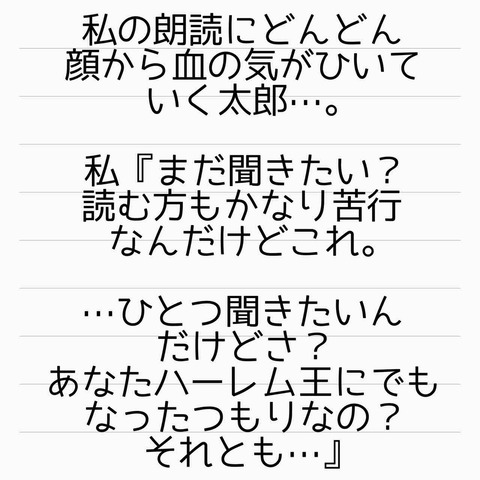 私の朗読にどんどん
顔から血の気がひいて
いく太郎…。
私『まだ聞きたい？
読む方もかなり苦行
なんだけどこれ。
…ひとつ聞きたいん
だけどさ？
あなたハーレム王にでも
なったつもりなの？
それとも…』